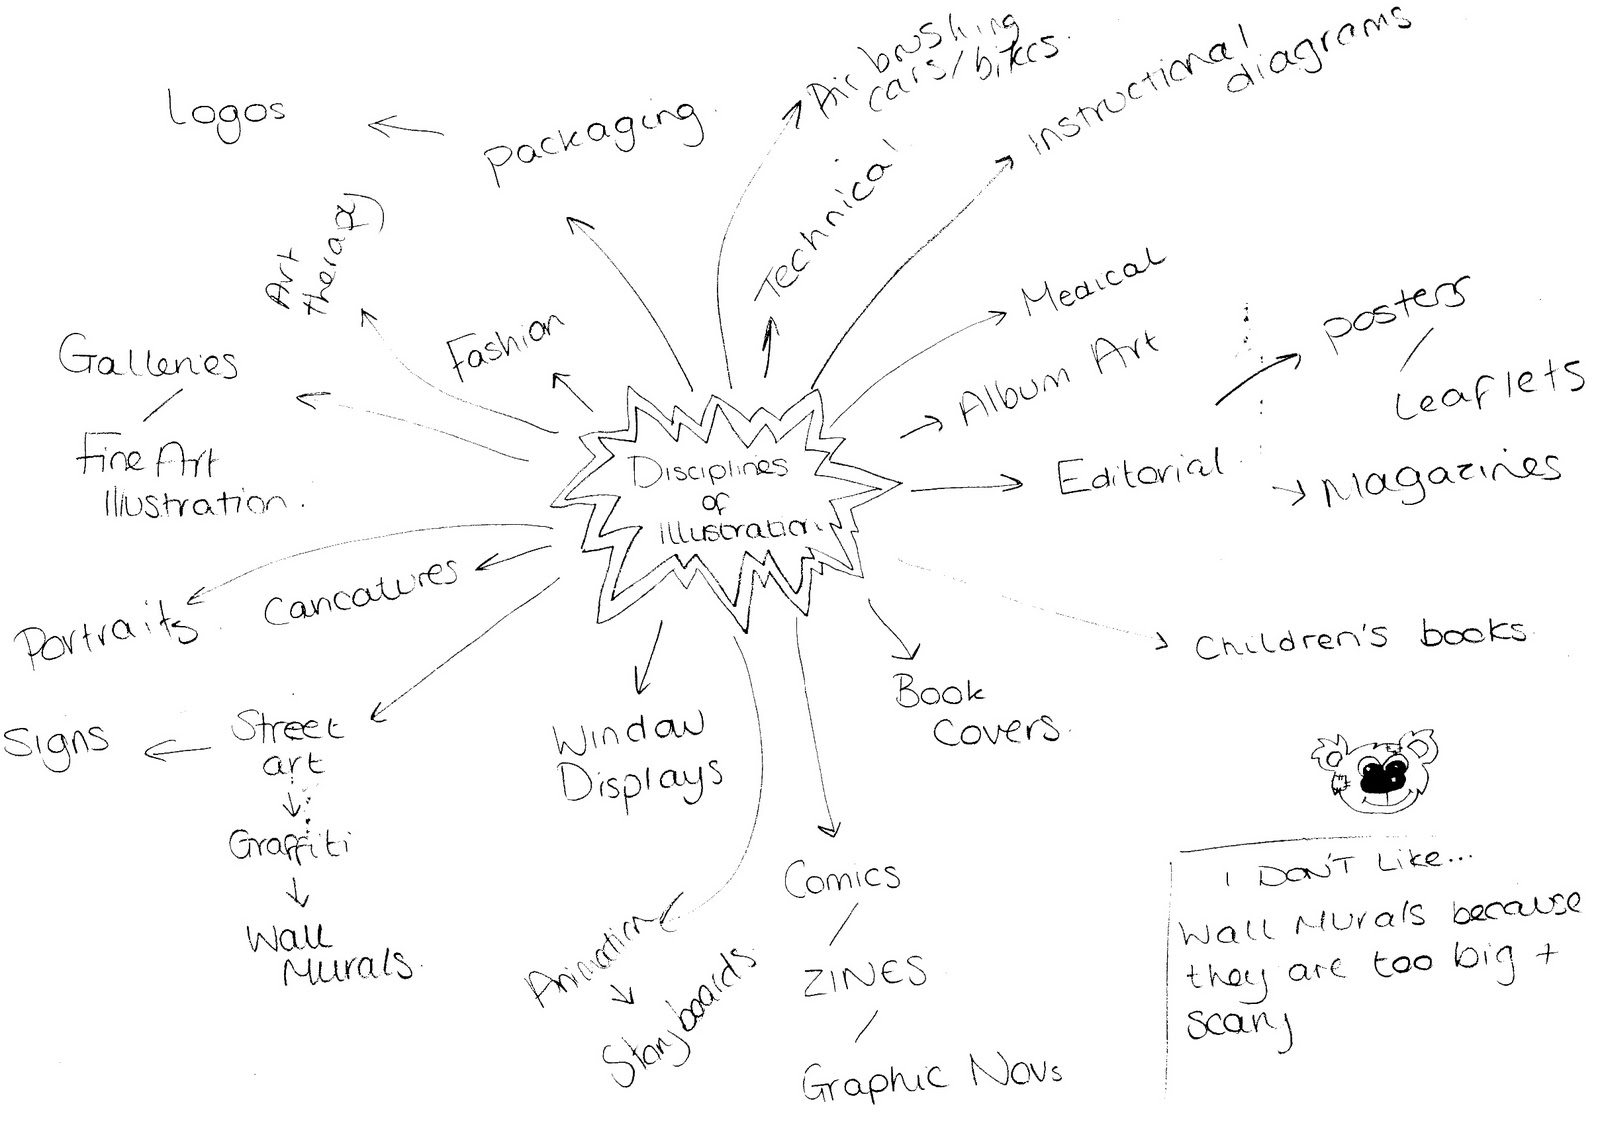 Disciplines
of
Illustration
Logos
Packaging
Air brushing
cars/bikes
Technical
Instructional
diagrams
Medical
Album Art
Editorial
Posters
Leaflets
Magazines
Children's books
Book
Covers
Comics
ZINES
Graphic Novs
Animation
Storyboards
Window
Displays
Street
art
Signs
Graffiti
Wall
Murals
Caricatures
Portraits
Galleries
Fine Art
Illustration
Art
therapy
Fashion
I DON'T Like...
Wall Murals because
they are too big +
scary